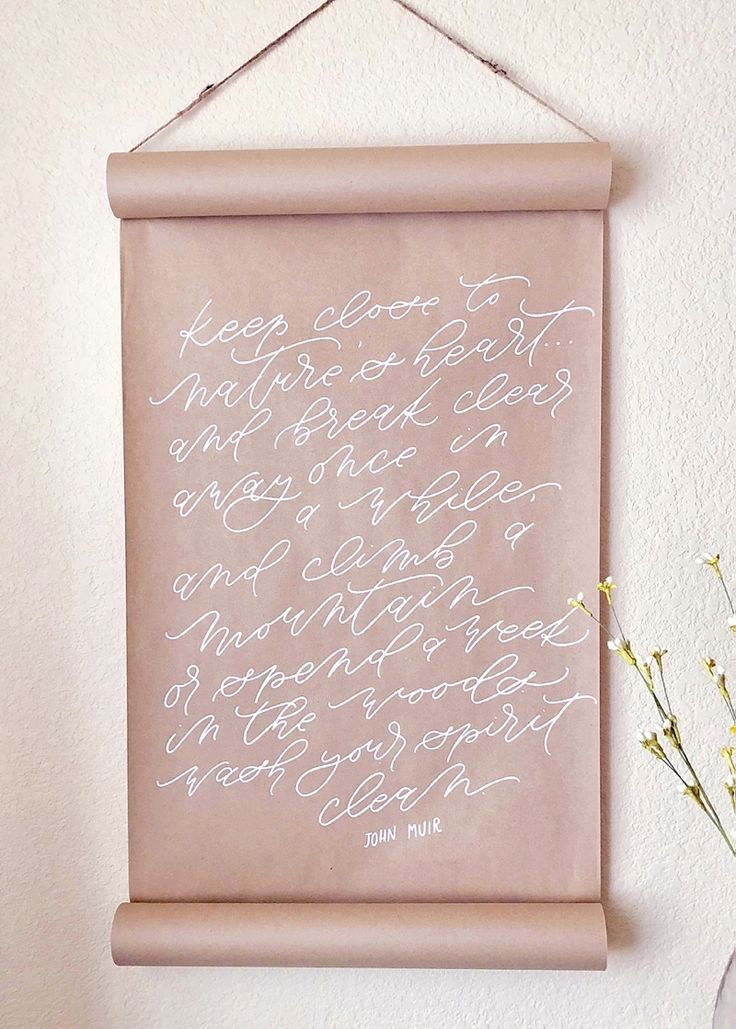 keep close to
nature's heart...
and break clear
away once in
a while,
and climb a
mountain
or spend a week
in the woods.
wash your spirit
clean.
JOHN MUIR